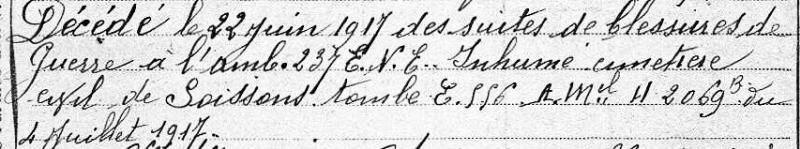 Décédé le 22 juin 1917 des suites de blessures de
guerre à l'amb. 237 E.N.E. Inhumé cimetiere
civil de Soissons tombe E.556 A.Mel H 2069B du
4 Juillet 1917.